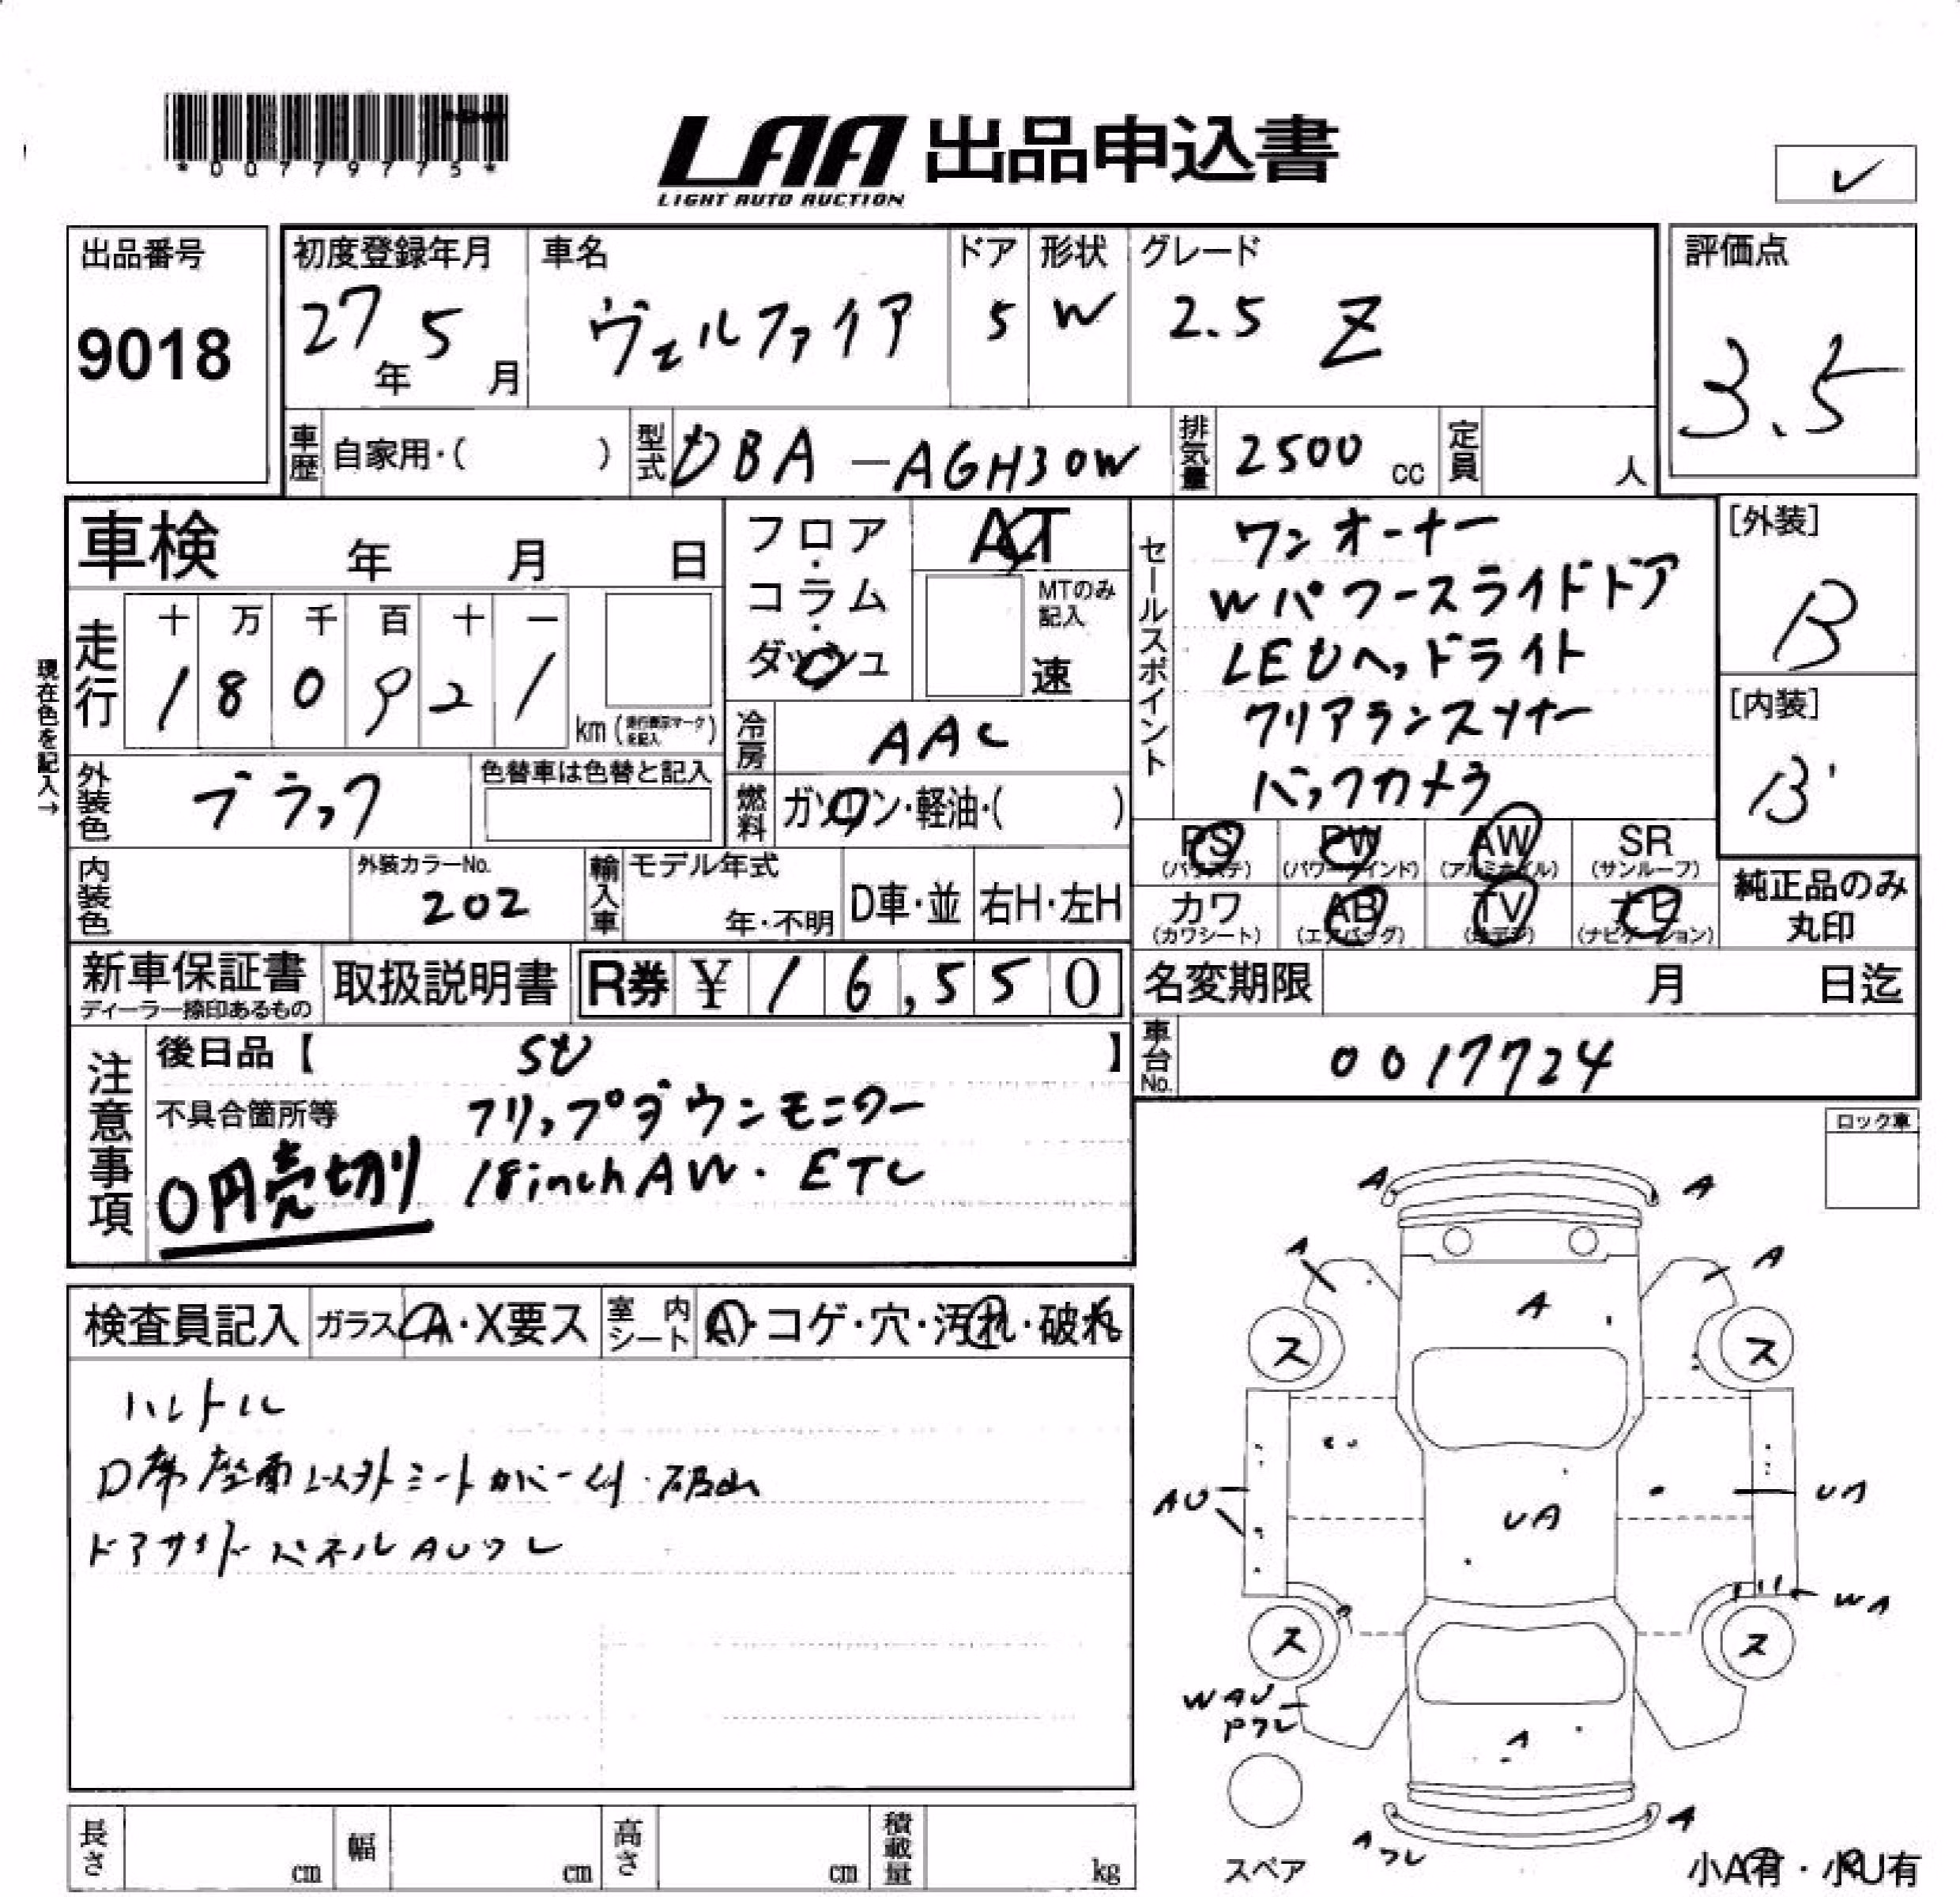 *00779775*
LAA 出品申込書
LIGHT AUTO AUCTION
✓
出品番号
9018
初度登録年月
27年 5月
車名
ヴェルファイア
ドア
5
形状
W
グレード
2.5 Z
評価点
3.5
車歴 自家用・( )
型式 DBA-AGH30W
排気量 2500 cc
定員 人
車検 年 月 日
フロア・コラム・ダッシュ
AT
MTのみ記入
速
セールスポイント
ワンオーナー
Wパワースライドドア
LEDヘッドライト
クリアランスソナー
バックカメラ
[外装]
B
[内装]
B'
現在色を記入→
走行
十 万 千 百 十 一
1 8 0 9 2 1
km (走行表示マークを記入)
冷房 AAC
外装色 ブラック
色替車は色替と記入
燃料 ガソリン・軽油・( )
PS (パワステ)
PW (パワーウインド)
AW (アルミホイル)
SR (サンルーフ)
カワ (カワシート)
AB (エアバッグ)
TV
ナビ (ナビゲーション)
純正品のみ
丸印
内装色
外装カラーNo.
202
輸入車
モデル年式
年・不明
D車・並
右H・左H
新車保証書
ディーラー捺印あるもの
取扱説明書
R券 ¥ 16,550
名変期限 月 日迄
車台No. 0017724
注意事項
後日品【 SD 】
不具合箇所等
フリップダウンモニター
0円売切り
18inchAW・ETC
ロック車
検査員記入
ガラス A・X要ス
室内シート A・コゲ・穴・汚れ・破れ
ハンドル
D席座面以外シートカバー付・破れ
ドアサイドパネルAUワレ
A A
A A
A
ス ス
AU
UA
UA
WA
ス ス
WAU
Pワレ
A
A
Aワレ
スペア
小A有・小U有
長さ cm
幅 cm
高さ cm
積載量 kg